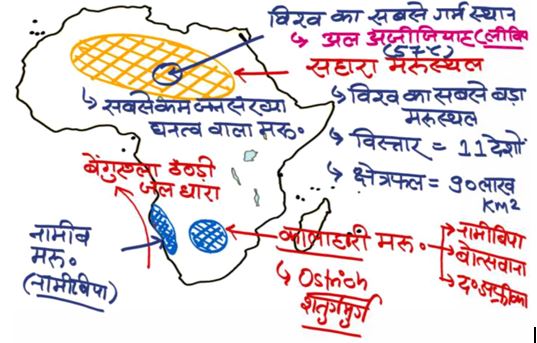 विश्व का सबसे गर्म स्थान
↳ अल अजीजियाह (लीबिया)
(57°C)
सहारा मरुस्थल
↳ सबसे कम जनसंख्या
घनत्व वाला मरु०
↳ विश्व का सबसे बड़ा
मरुस्थल
↳ विस्तार = 11 देशों
↳ क्षेत्रफल = 90 लाख
KM2
बेंगुएला ठण्डी
जल धारा
नामीब
मरु०
(नामीबिया)
कालाहारी मरु०
→ नामीबिया
→ बोत्सवाना
→ द० अफ्रीका
↳ Ostrich
शुतुर्गमुर्ग